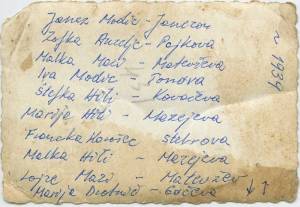 Janez Modic - Janezov
Zofka Anzeljc - Pajkova
Malka Mazi - Matevževa
Iva Modic - Tonova
Štefka Hiti - Kovačeva
Marija Hiti - Matejeva
Francka - Štebrova
Malka Hiti - Matejeva
Lojze Mazi - Matevžev
Marija
↓↑
1934